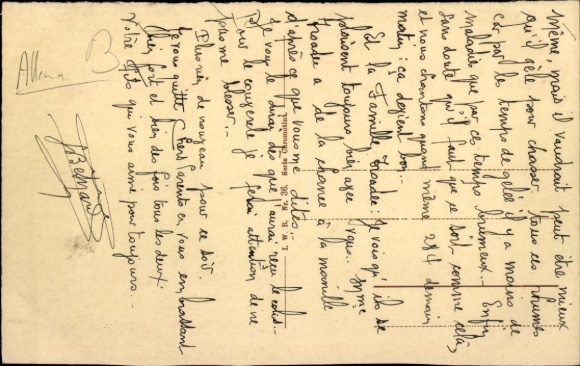 même, mais il vaudrait peut être mieux
qu'il gèle pour chasser tous ces rhumes
car par les temps de gelée il y a moins de
maladie que par ces temps brumeux. Enfin
sans doute qu'il faut que ce soit comme cela,
et nous chantons quand même 284 demain
matin; ça devient bon..
Et la Famille : Je vois qu'ils se
plaisent toujours bien avec vous. Mme
a de la chance à la
d'après ce que vous me dites..
Je vous le dirai dès que j'aurai reçu le colis.
Pour le couvercle je ferai attention de ne
pas me blesser..
Plus rien de nouveau pour ce soir.
Je vous quitte Chers Parents en vous embrassant
bien fort et bien des fois tous les deux.
Votre Fils qui vous aime pour toujours..
Bernard